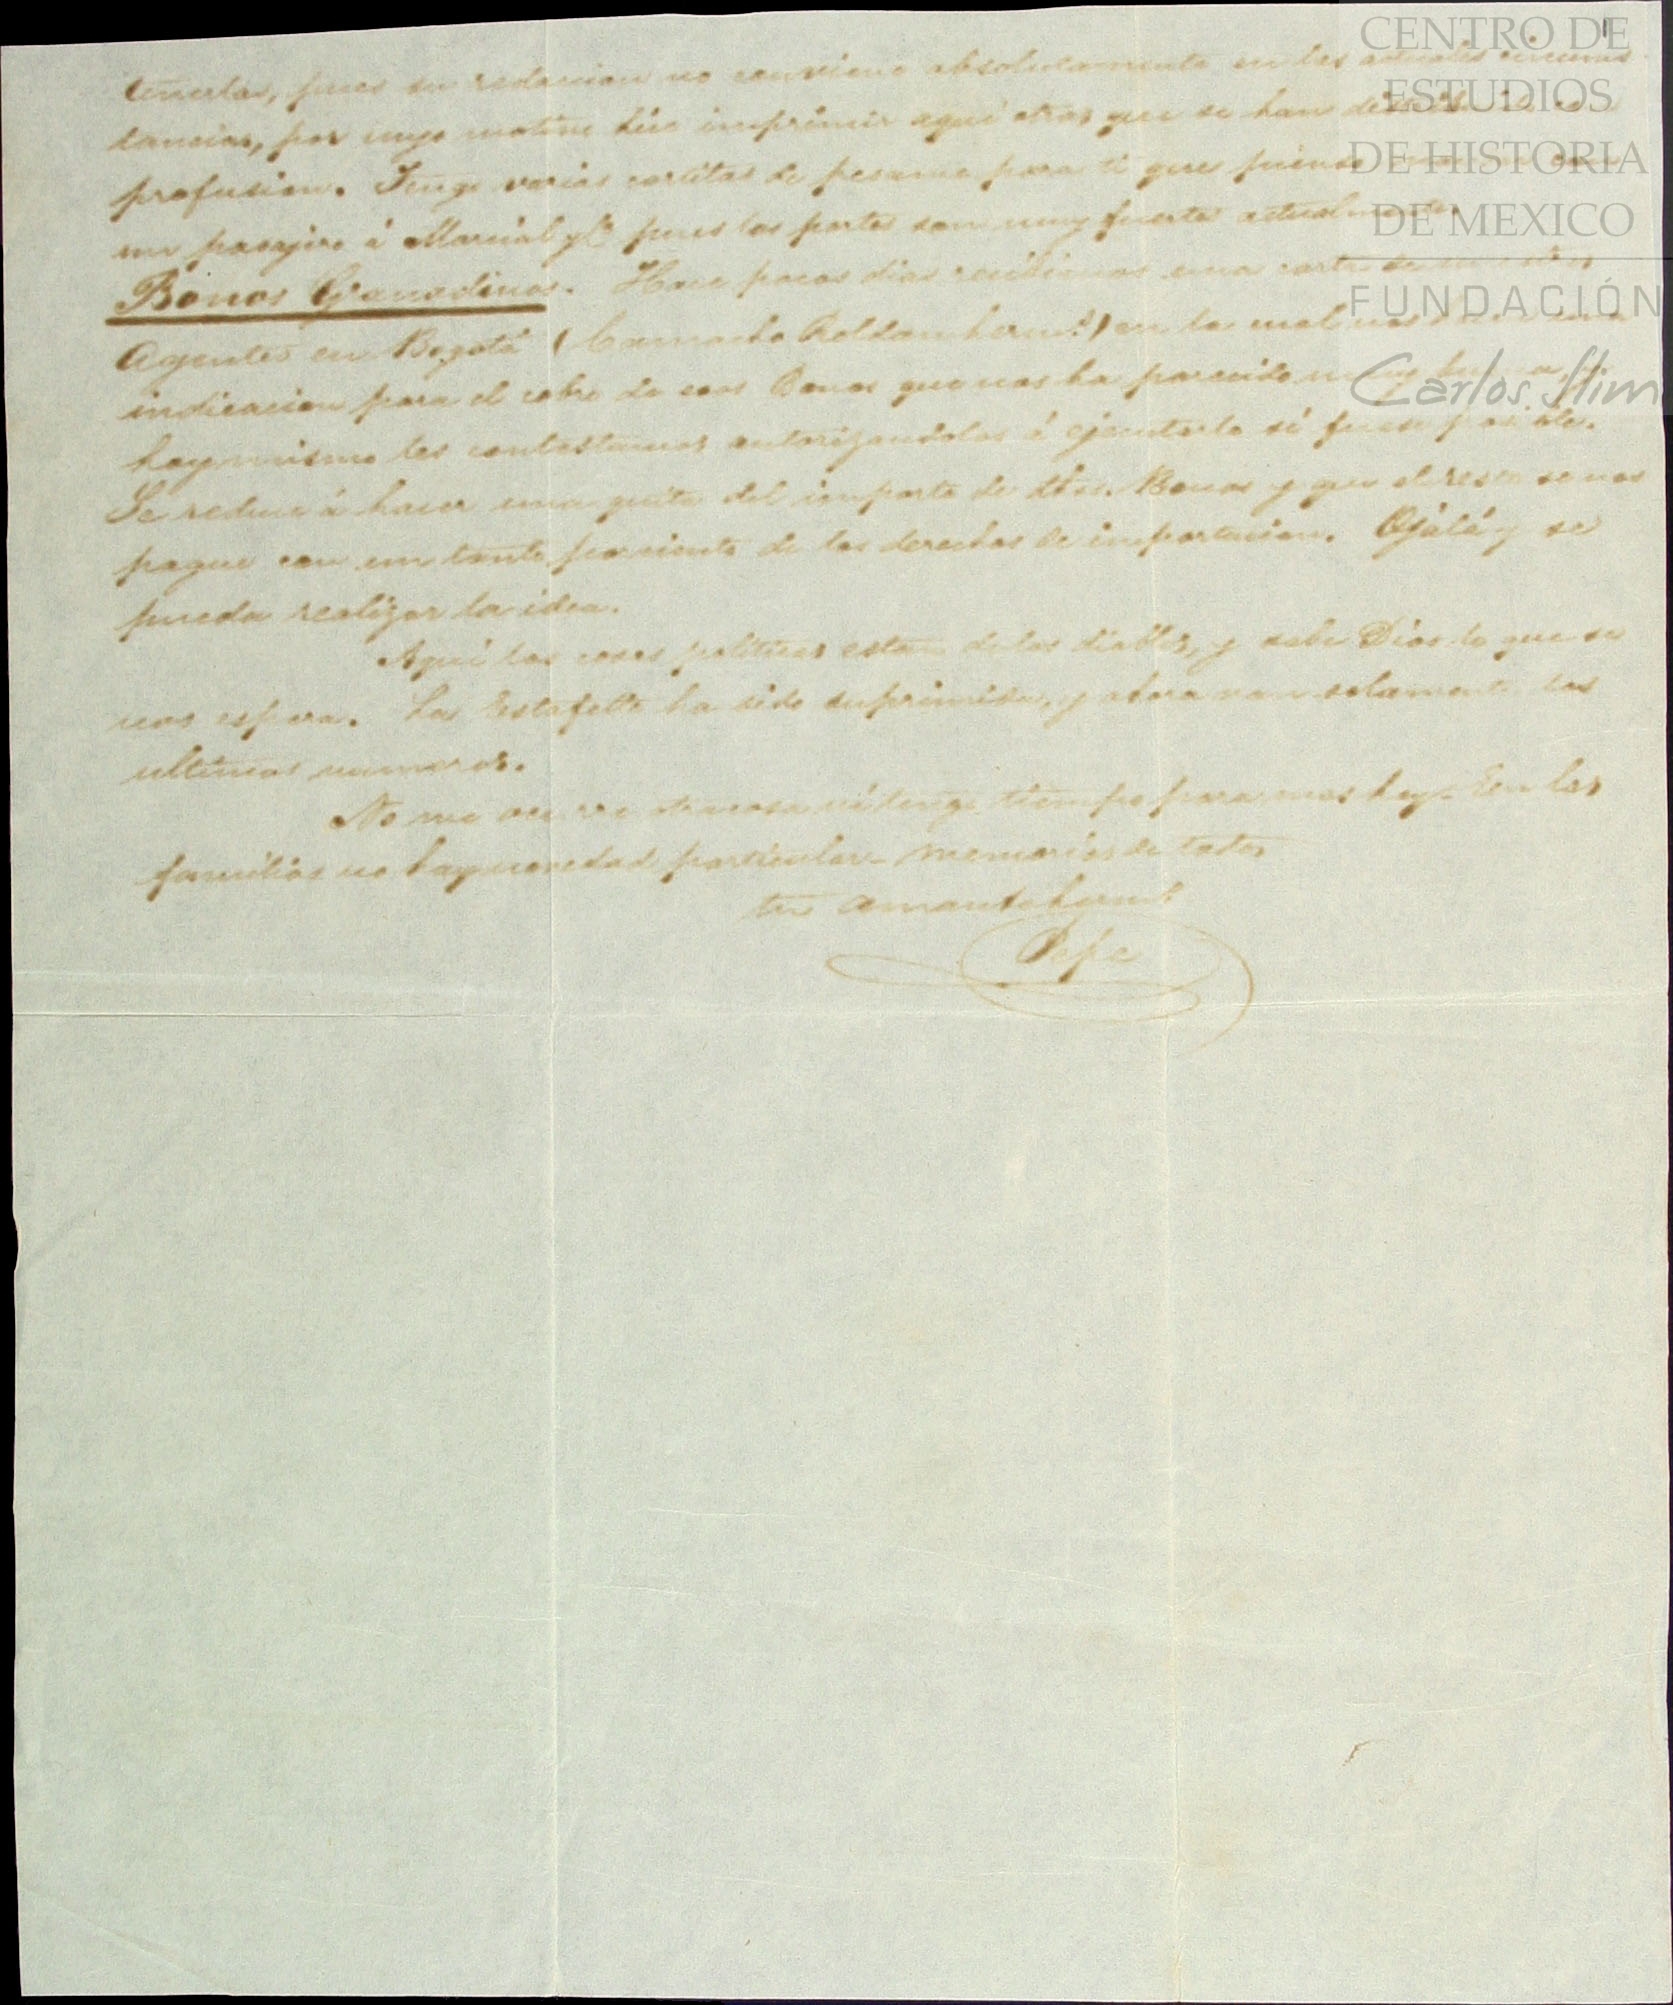 CENTRO DE
ESTUDIOS
DE HISTORIA
DE MEXICO
FUNDACIÓN
Carlos Slim
tenerlas, pues su redaccion no conviene absolutamente en las actuales circuns
tancias, por cuyo motivo hice imprimir aqui otras que se han
profusion. Tengo varias cartitas de pesame para ti que pienso
un pasajero á Marcial y Ca pues los portes son muy fuertes actualmente.
Bonos Granadinos. Hace pocos dias recibimos una carta de nuestros
Agentes en Bogotá (Camacho Roldan herms.) en la cual nos
indicacion para el cobro de esos Bonos que nos ha parecido muy buena, y
hoy mismo les contestamos autorizandolos á ejecutarla si fuese posible.
Se reduce á hacer una quita del importe de dhos. Bonos y que el resto se nos
pague con un tanto por ciento de los derechos de importacion. Ojálá y se
pueda realizar la idea.
Aqui las cosas politicas estan de los diablos, y sabe Dios lo que se
nos espera. La Estafette ha sido suprimida, y ahora van solamente los
ultimos numeros.
No me ocurre otra cosa ni tengo tiempo para mas hoy. En las
familias no hay novedad particular. memorias de todos
tu amante herms.
Pepe